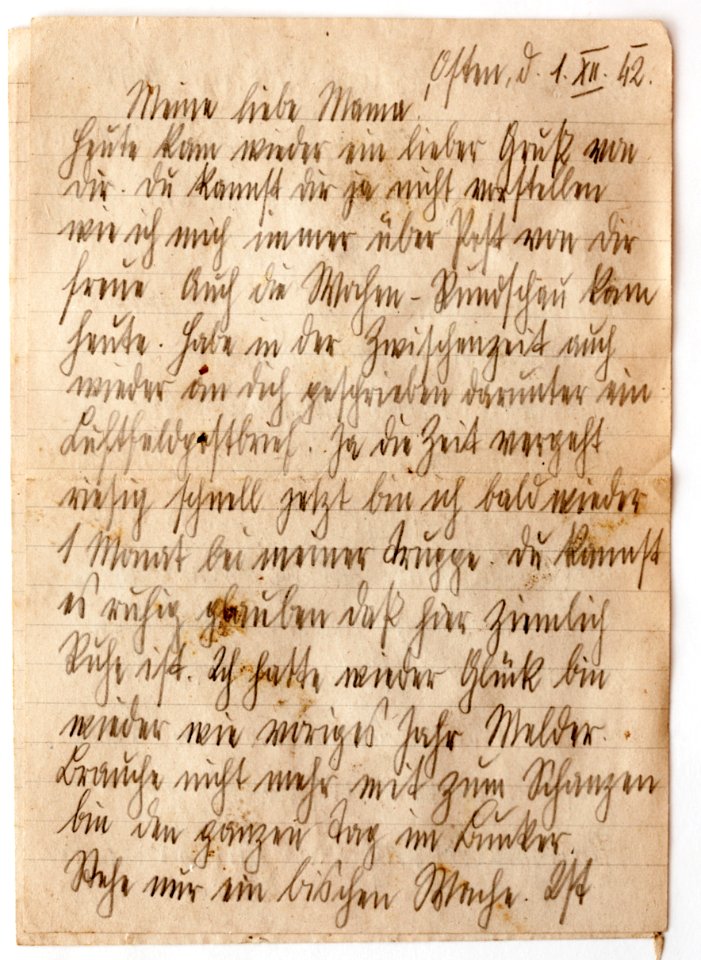 Osten, d. 1. XII. 42.
Meine liebe Mama!
Heute kam wieder ein lieber Gruß von
dir. Du kannst dir ja nicht vorstellen
wie ich mich immer über Post von dir
freue. Auch die Wochen-Rundschau kam
heute. Habe in der Zwischenzeit auch
wieder an dich geschrieben darunter ein
Luftfeldpostbrief. Ja die Zeit vergeht
riesig schnell jetzt bin ich bald wieder
1 Monat bei meiner Truppe. Du kannst
es ruhig glauben daß hier ziemlich
Ruhe ist. Ich hatte wieder Glück bin
wieder wie voriges Jahr Melder.
Brauche nicht mehr mit zum Schanzen
bin den ganzen Tag im Bunker.
Stehe nur ein bischen Wache. Ist